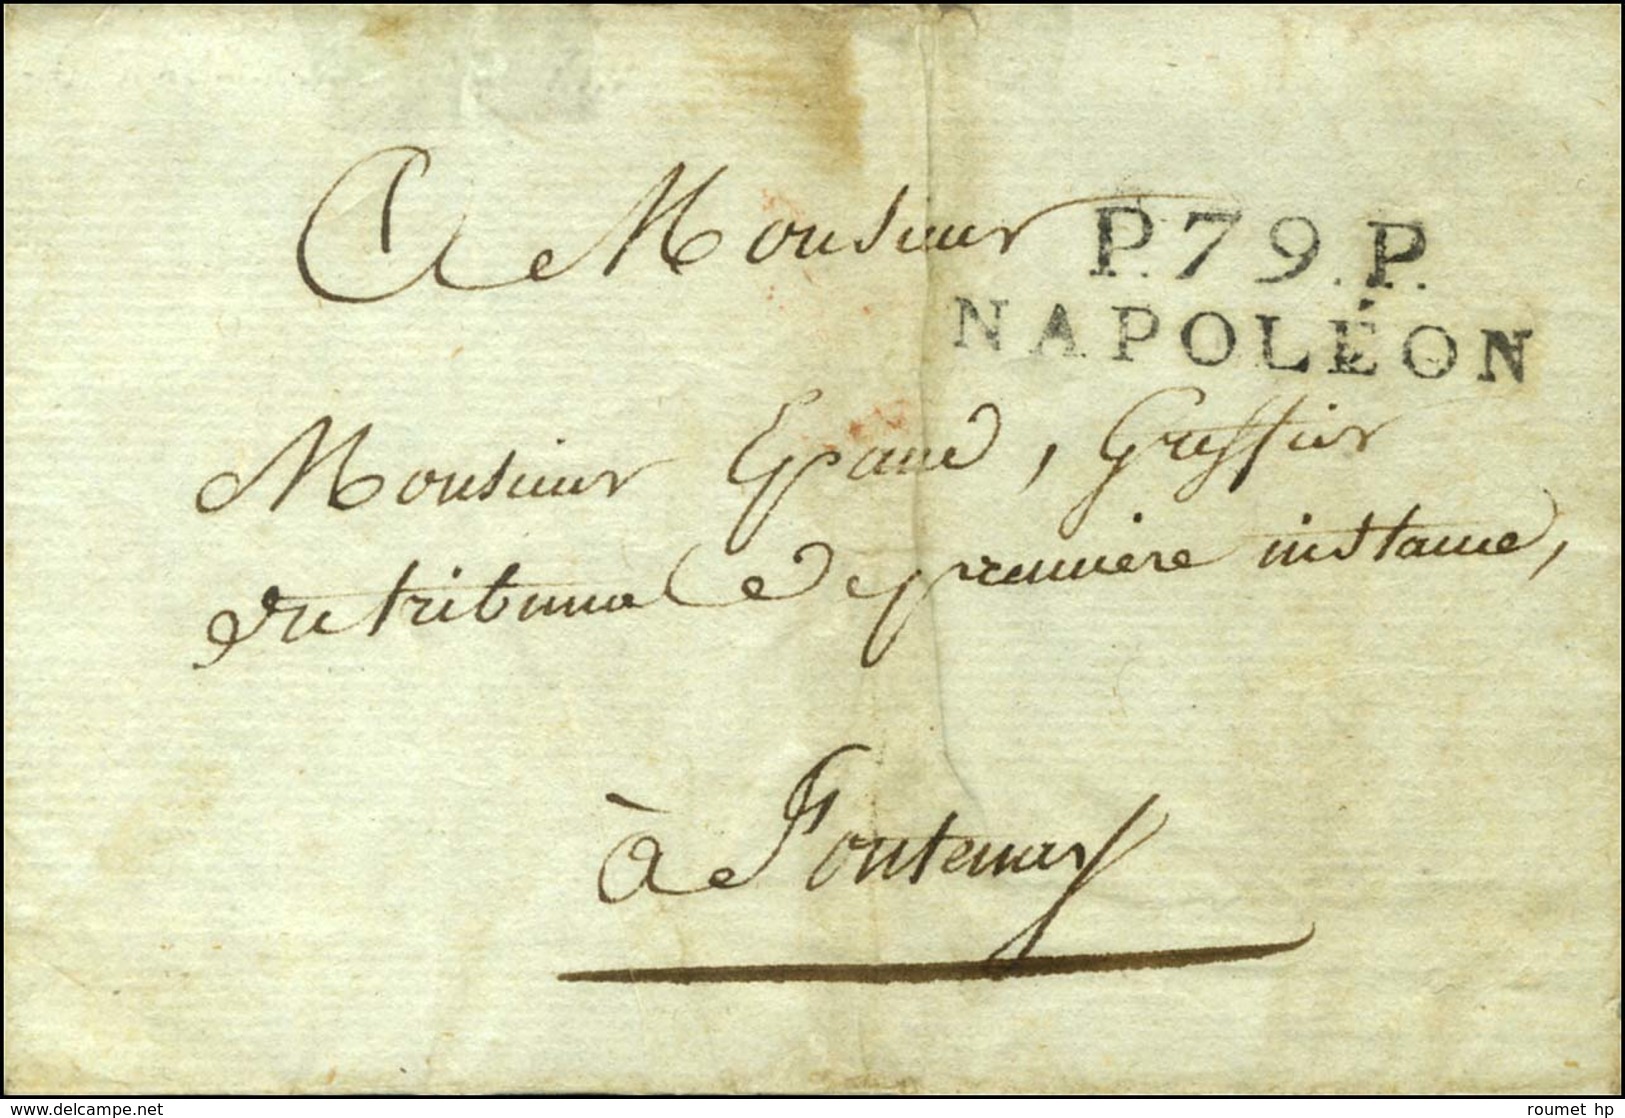 A Monsieur
P.79.P.
NAPOLÉON
Monsieur Epaud, Greffier
du tribunal de premiere instance,
à Fontenay
www.delcampe.net
roumet hp